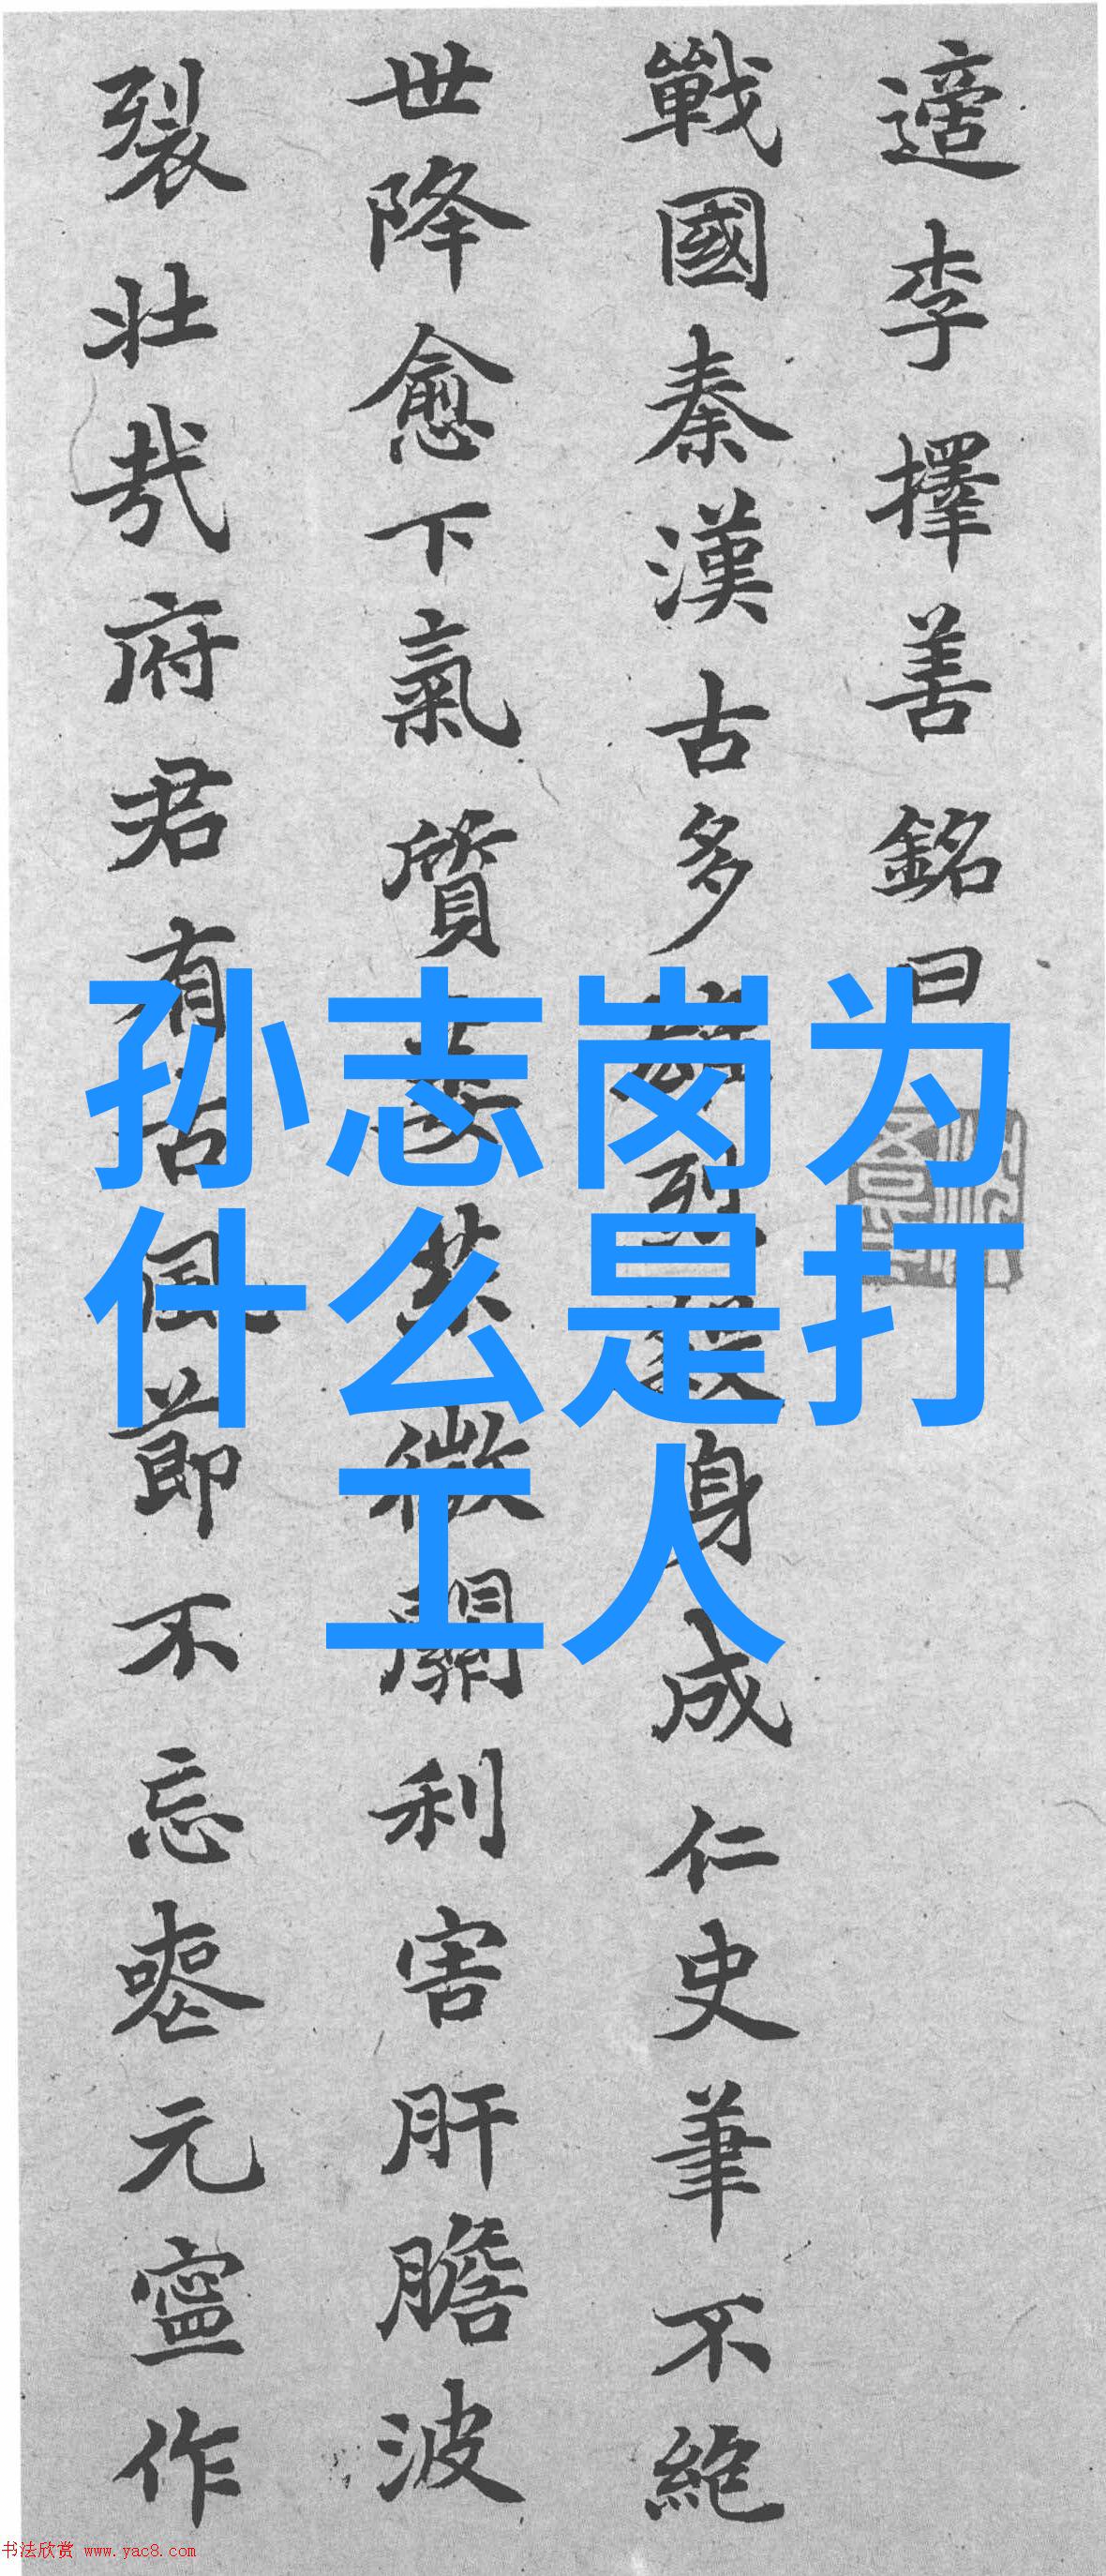 適李擇善銘曰
戰國秦漢古多烈身成仁史筆不絶
世降愈下氣質委茶微關利害肝膽波
裂壯哉府君有古風節不忘喪元寧作
孙志岗为
什么是打
工人
书法欣赏 www.yac8.com